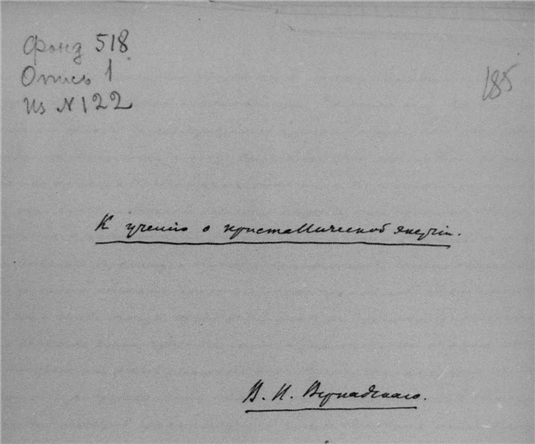 Фонд 518
Опись 1
Из N 122
185
К учению о кристаллической энергии.
В. И. Вернадского.